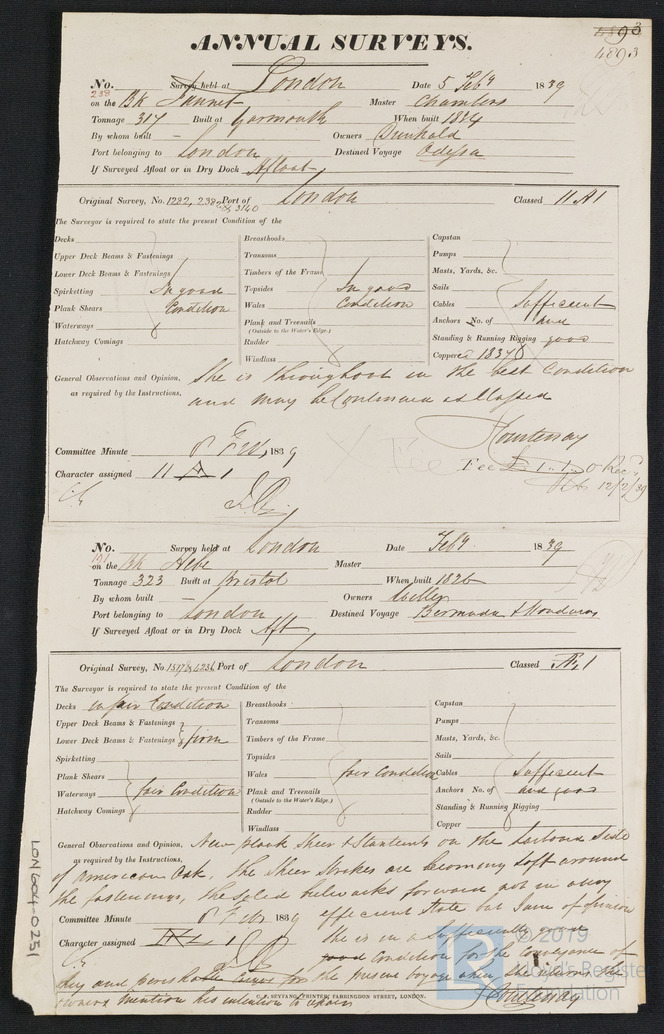 4893
4893
ANNUAL SURVEYS.
No. 238 Survey held at London Date 5 Feby 1839
on the Bk Jannet Master Chambers
Tonnage 317 Built at Yarmouth When built 1824
By whom built — Owners
Port belonging to London Destined Voyage Odessa
If Surveyed Afloat or in Dry Dock Afloat
Original Survey, No. 1222, 2382 & 3140 Port of London Classed 11 A 1
The Surveyor is required to state the present Condition of the
Decks
Upper Deck Beams & Fastenings
Lower Deck Beams & Fastenings
Spirketting In good
Plank Shears Condition
Waterways
Hatchway Comings
Breasthooks
Transoms
Timbers of the Frame
Topsides In good
Wales Condition
Plank and Treenails
(Outside to the Water's Edge.)
Rudder
Windlass
Capstan
Pumps
Masts, Yards, &c.
Sails
Cables Sufficient
Anchors No. of and
Standing & Running Rigging good
Coppered 1837
General Observations and Opinion, She is throughout in the best Condition
as required by the Instructions, and may be Continued as Classed
Courtenay
Committee Minute 8 Feb 1839
Fee £1..1..0 Recd
12/2/39
Character assigned 11 A 1
No. 191 Survey held at London Date Feby 1839
on the Bk Hebe Master
Tonnage 323 Built at Bristol When built 1826
By whom built — Owners
Port belonging to London Destined Voyage Bermuda & Honduras
If Surveyed Afloat or in Dry Dock Aft
Original Survey, No. Port of London Classed Æ 1
The Surveyor is required to state the present Condition of the
Decks in fair Condition
Upper Deck Beams & Fastenings
Lower Deck Beams & Fastenings firm
Spirketting
Plank Shears
Waterways fair Condition
Hatchway Comings
Breasthooks
Transoms
Timbers of the Frame
Topsides
Wales fair Condition
Plank and Treenails
(Outside to the Water's Edge.)
Rudder
Windlass
Capstan
Pumps
Masts, Yards, &c.
Sails
Cables Sufficient
Anchors No. of and good
Standing & Running Rigging
Copper
General Observations and Opinion, New plank Sheer & Stantients on the Larboard Side
as required by the Instructions, of American Oak. The Sheer Strakes are becoming soft around
the fastenings, the solid bulwarks forward not in a very
Committee Minute 8 Feb 1839 efficient state but I am of opinion
Character assigned Æ 1 She is in a sufficiently good
Condition for the Conveyance of
dry and perishable Cargo for the present voyage when She returns the
owners mention his intention to repair
Courtenay
C. F. SEYFANG, PRINTER, FARRINGDON STREET, LONDON.
LON604-0251
© 2019
Lloyd's Register
Foundation